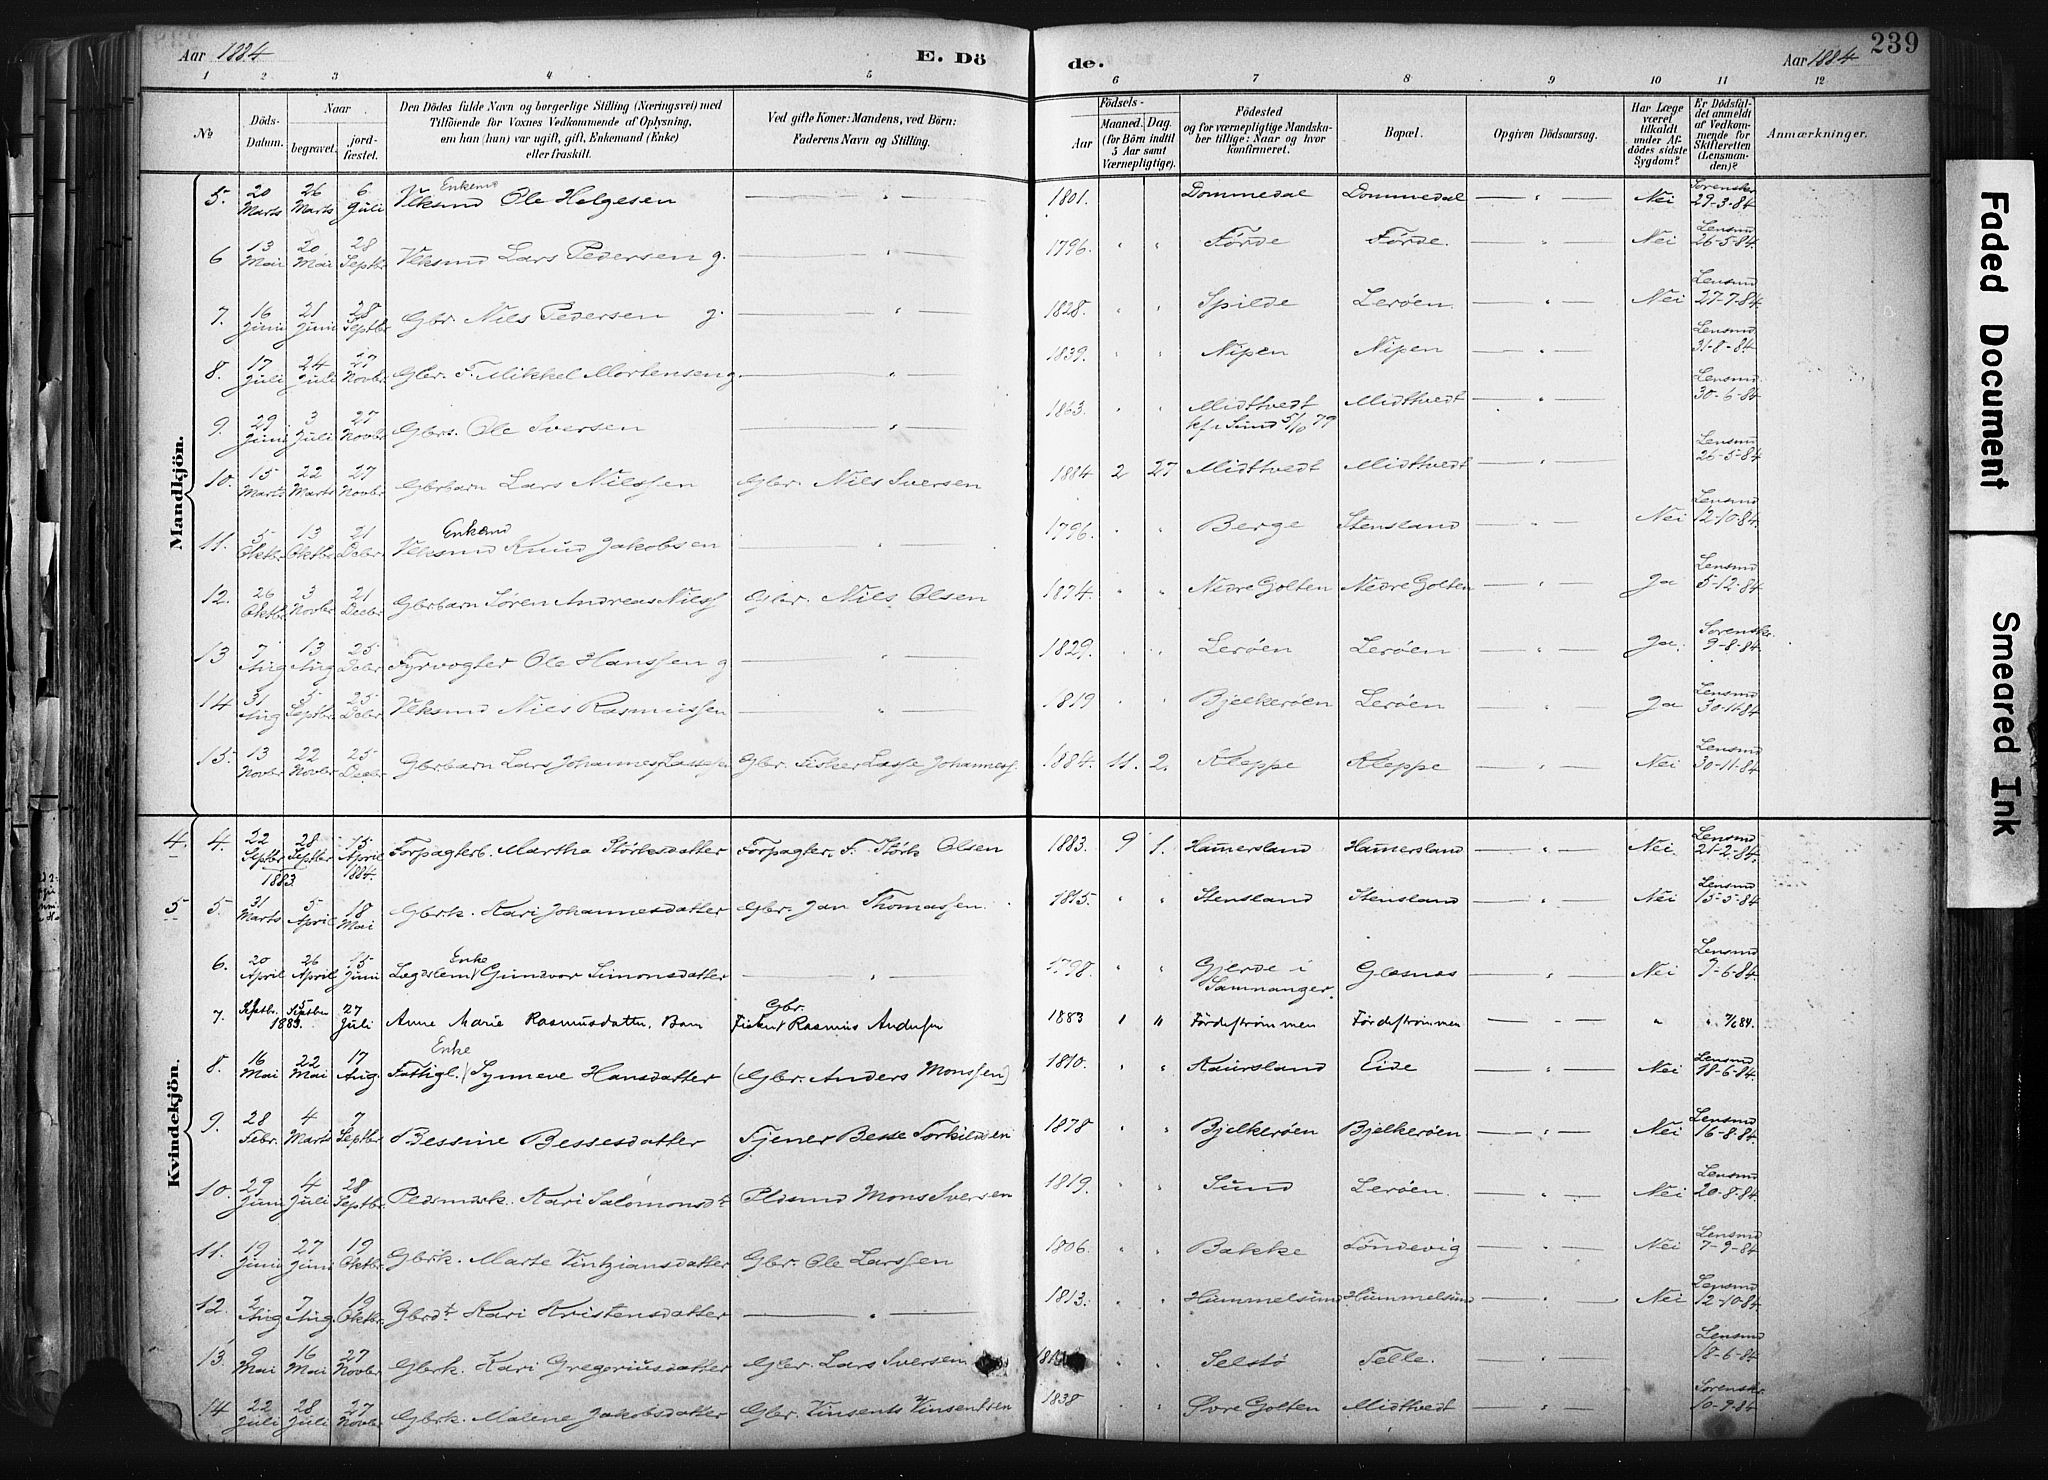 Aar 1884 E. Dö de. Aar 1884 239
1 2 3 4 5 6 7 8 9 10 11 12
No Döds-Datum. Naar begravet. jord-fæstet. Den Dödes fulde Navn og borgerlige Stilling (Næringsvei) med Tilföiende for Voxnes Vedkommende af Oplysning, om han (hun) var ugift, gift, Enkemand (Enke) eller fraskilt. Ved gifte Koner: Mandens, ved Börn: Faderens Navn og Stilling. Födsels- Aar Maaned. Dag. (for Börn indtil 5 Aar samt Værnepligtige). Födested og for værnepligtige Mandskaber tillige: Naar og hvor konfirmeret. Bopæl. Opgiven Dödsaarsag. Har Læge været tilkaldt under Afdödes sidste Sygdom? Er Dödsfaldet anmeldt af Vedkommende for Skifteretten (Lensmanden)? Anmærkninger.
Mandkjön.
5. 20 Marts 26 Marts 6 Juli Vlksmd Enkemd Ole Helgesen — " — 1801. Dommedal Dommedal — " — Nei Sorenskr 29-3-84
6 13 Mai 20 Mai 28 Septbr Vlksmd Lars Pedersen g. — " — 1796. " " Förde Förde. — " — Nei Lensmd 26-5-84
7. 16 Juni 21 Juni 28 Septbr Gbr. Nils Pedersen g. — " — 1828. " " Spilde Leröen. — " — Nei Lensmd 27-7-84
8. 17 Juli 24 Juli 27 Novbr. Gbr. F. Mikkel Mortensen g — " — 1839. " " Nipen Nipen — " — Lensmd 31-8-84
9. 29 Juni 3 Juli 27 Novbr Gbrs. Ole Iversen — " — 1863. " " Midttvedt kf. i Sund 5/10 79 Midttvedt — " — Lensmd 30-6-84
10. 15 Marts 22 Marts 27 Novbr Gbrbarn Lars Nilssen Gbr. Nils Iversen 1884 2 27 Midttvedt Midttvedt — " — Lensmd 26-5-84
11. 5 Oktbr. 13 Oktbr 21 Debr Vlksmd Enkemd Knud Jakobsen — " — 1796. " " Berge Stensland — " — Nei Lensmd 12-10-84
12. 26 Oktbr 3 Novbr 21 Decbr Gbrbarn Sören Andreas Nilss Gbr. Nils Olsen 1874. " " Nedre Golten Nedre Golten — " — Ja Lensmd 5-12-84
13 7 Aug 13 Aug 25 Debr Fyrvogter Ole Hanssen g — " — 1829. " " Leröen Leröen — " — Ja. Sorenskr. 9-8-84
14 31 Aug 5 Septbr 25 Debr Vlksmd Nils Rasmussen — " — 1819 " " Bjelkeröen Leröen — " — Ja Lensmd 30-11-84
15. 13 Novbr 22 Novbr 25 Decbr Gbrbarn Lars Johannes Lassesen Gbr. Fisker Lasse Johanness. 1884. 11. 2. Kleppe Kleppe — " — Nei Lensmd 30-11-84
Kvindekjön.
4. 4. 22 Septbr 28 Septbr 1883. 15 April 1884. Forpagterb. Martha Störksdatter Forpagter. F. Störk Olsen 1883. 9 1. Hamersland Hamersland — " — Nei. Lensmd 21-2-84.
5 5. 31 Marts 5 April 18 Mai Gbrk. Kari Johannesdatter Gbr. Jan Thomassen. 1815. " " Stensland Stensland — " — Nei Lensmd 15-5-84
6. 20 April 26 April 15 Juni Lægdslem Enke Gundvor Simonsdatter — " — 1798. " " Gjerde i Samnanger. Glesnæs — " — Nei Lensmd 7-6-84.
7. Septbr. 5 Septbr 1883. 27 Juli Anne Marie Rasmusdatter, Barn Gbr. Fisker Rasmus Andersen 1883 " " Fördeströmmen Fördeströmmen — " — " " 7/6 84.
8. 16 Mai 22 Mai 17 Aug. Fattigl. Enke Synneve Hansdatter (Gbr. Anders Monssen) 1810. " " Kaursland Eide — " — Nei Lensmd 18-6-84.
9. 28 Febr. 4 Marts 7 Septbr Bessine Bessesdatter Tjener Besse Torkildsen 1878 " " Bjelkeröen Bjelkeröen — " — Nei Lensmd 16-8-84
10. 29 Juni 4 Juli 28 Septbr. Pldsmdsk. Kari Salomonsdt Pldsmd Mons Iversen 1819. " " Sund Leröen. — " — Nei Lensmd 20-8-84
11. 19 Juni 27 Juni 19 Oktbr Gbrk. Marte Vintziansdatter Gbr. Ole Larssen 1806. " " Bakke Töndevig — " — Nei Lensmd 7-9-84
12. 2 Aug 7 Aug. 19 Oktbr Gbrdt. Kari Kristensdatter — " — 1813. " " Hummelsund Hummelsund — " — Nei Lensmd 12-10-84
13. 9 Mai 16 Mai 27 Novbr Gbrk. Kari Gregoriusdatter Gbr. Lars Iversen " " Selstö Telle. — " — Lensmd 18-6-84
14. 22 Juli 28 Juli 27 Novbr. Gbrk. Malene Jakobsdatter Gbr. Vinsents Vinsentsen 1838 " " Øvre Golten Midttvedt — " — Sorenskr. 10-9-84
Faded Document
Smeared Ink